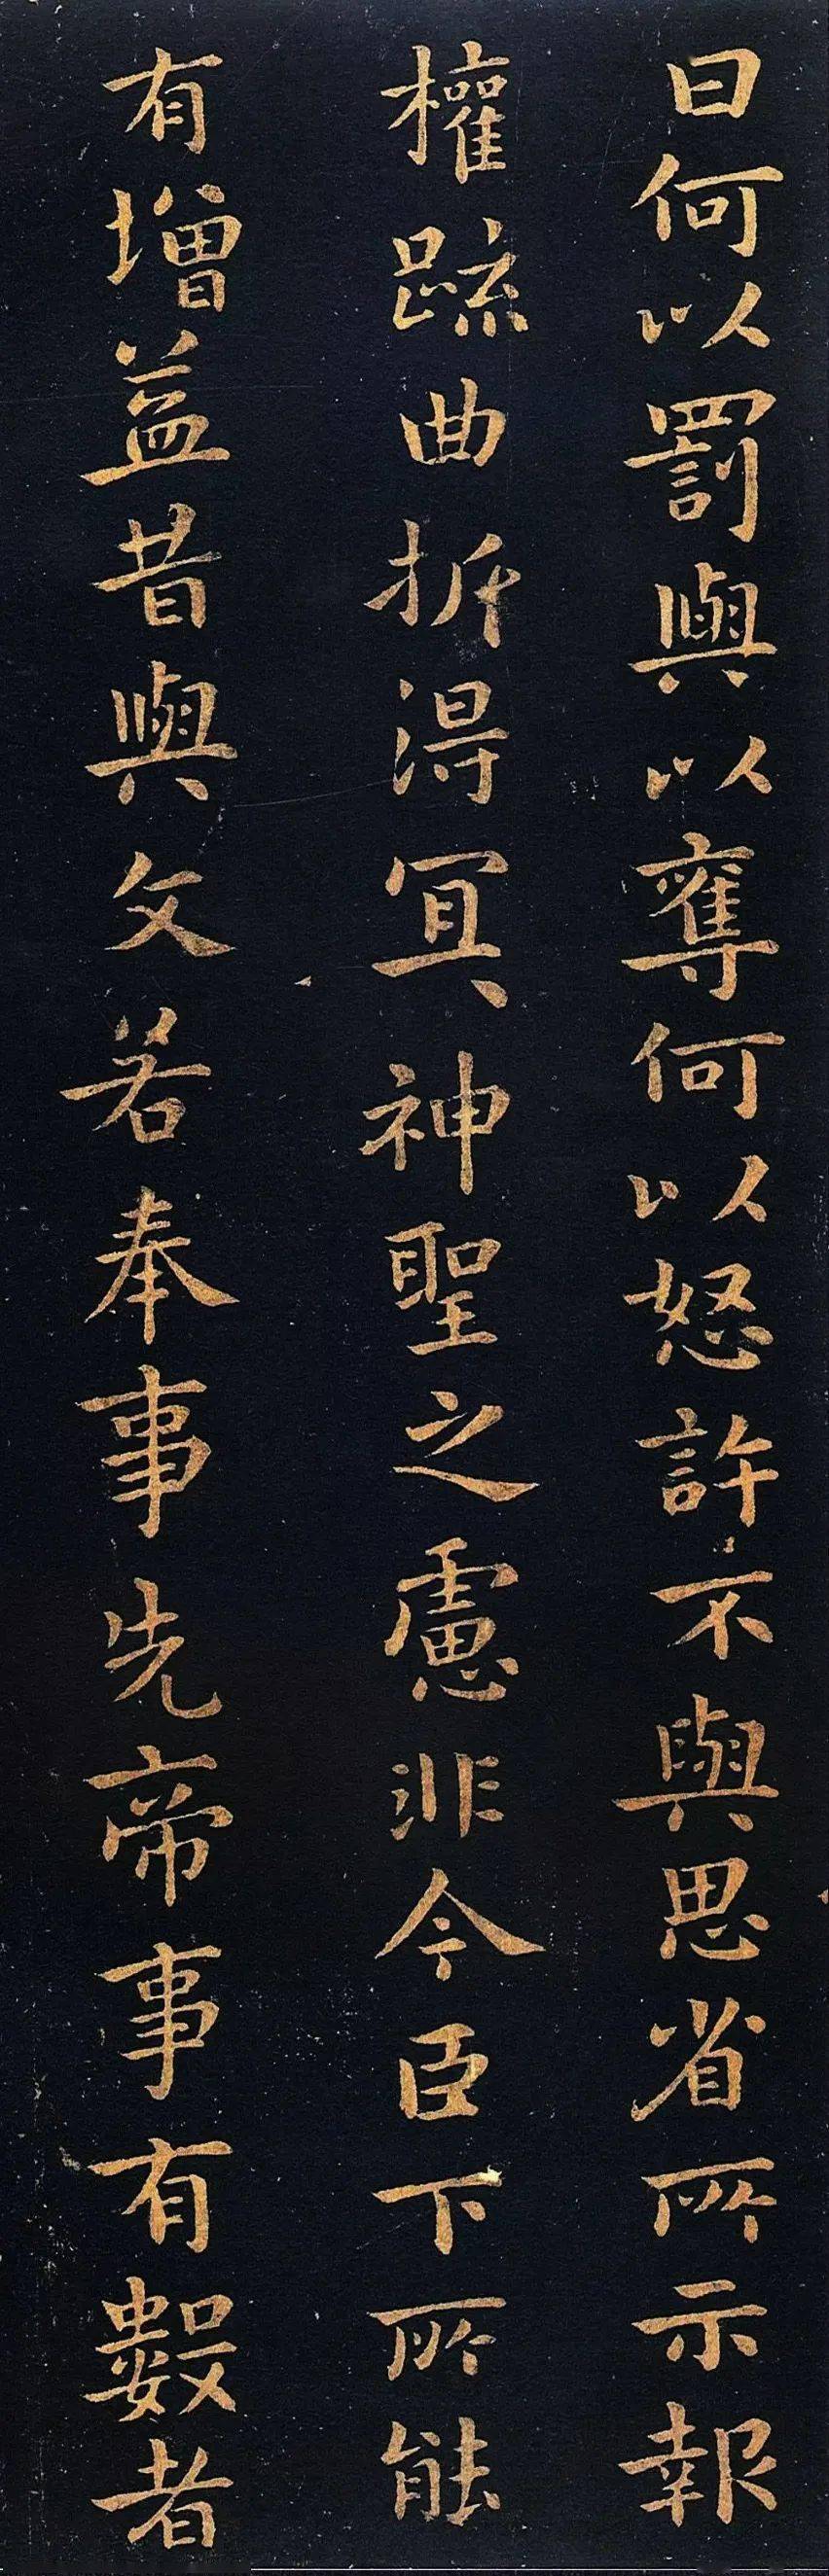 曰何以罰與以奪何以怒許不與思省所示報
權疏曲折得宜神聖之慮非今臣下所能
有增益昔與文若奉事先帝事有數者